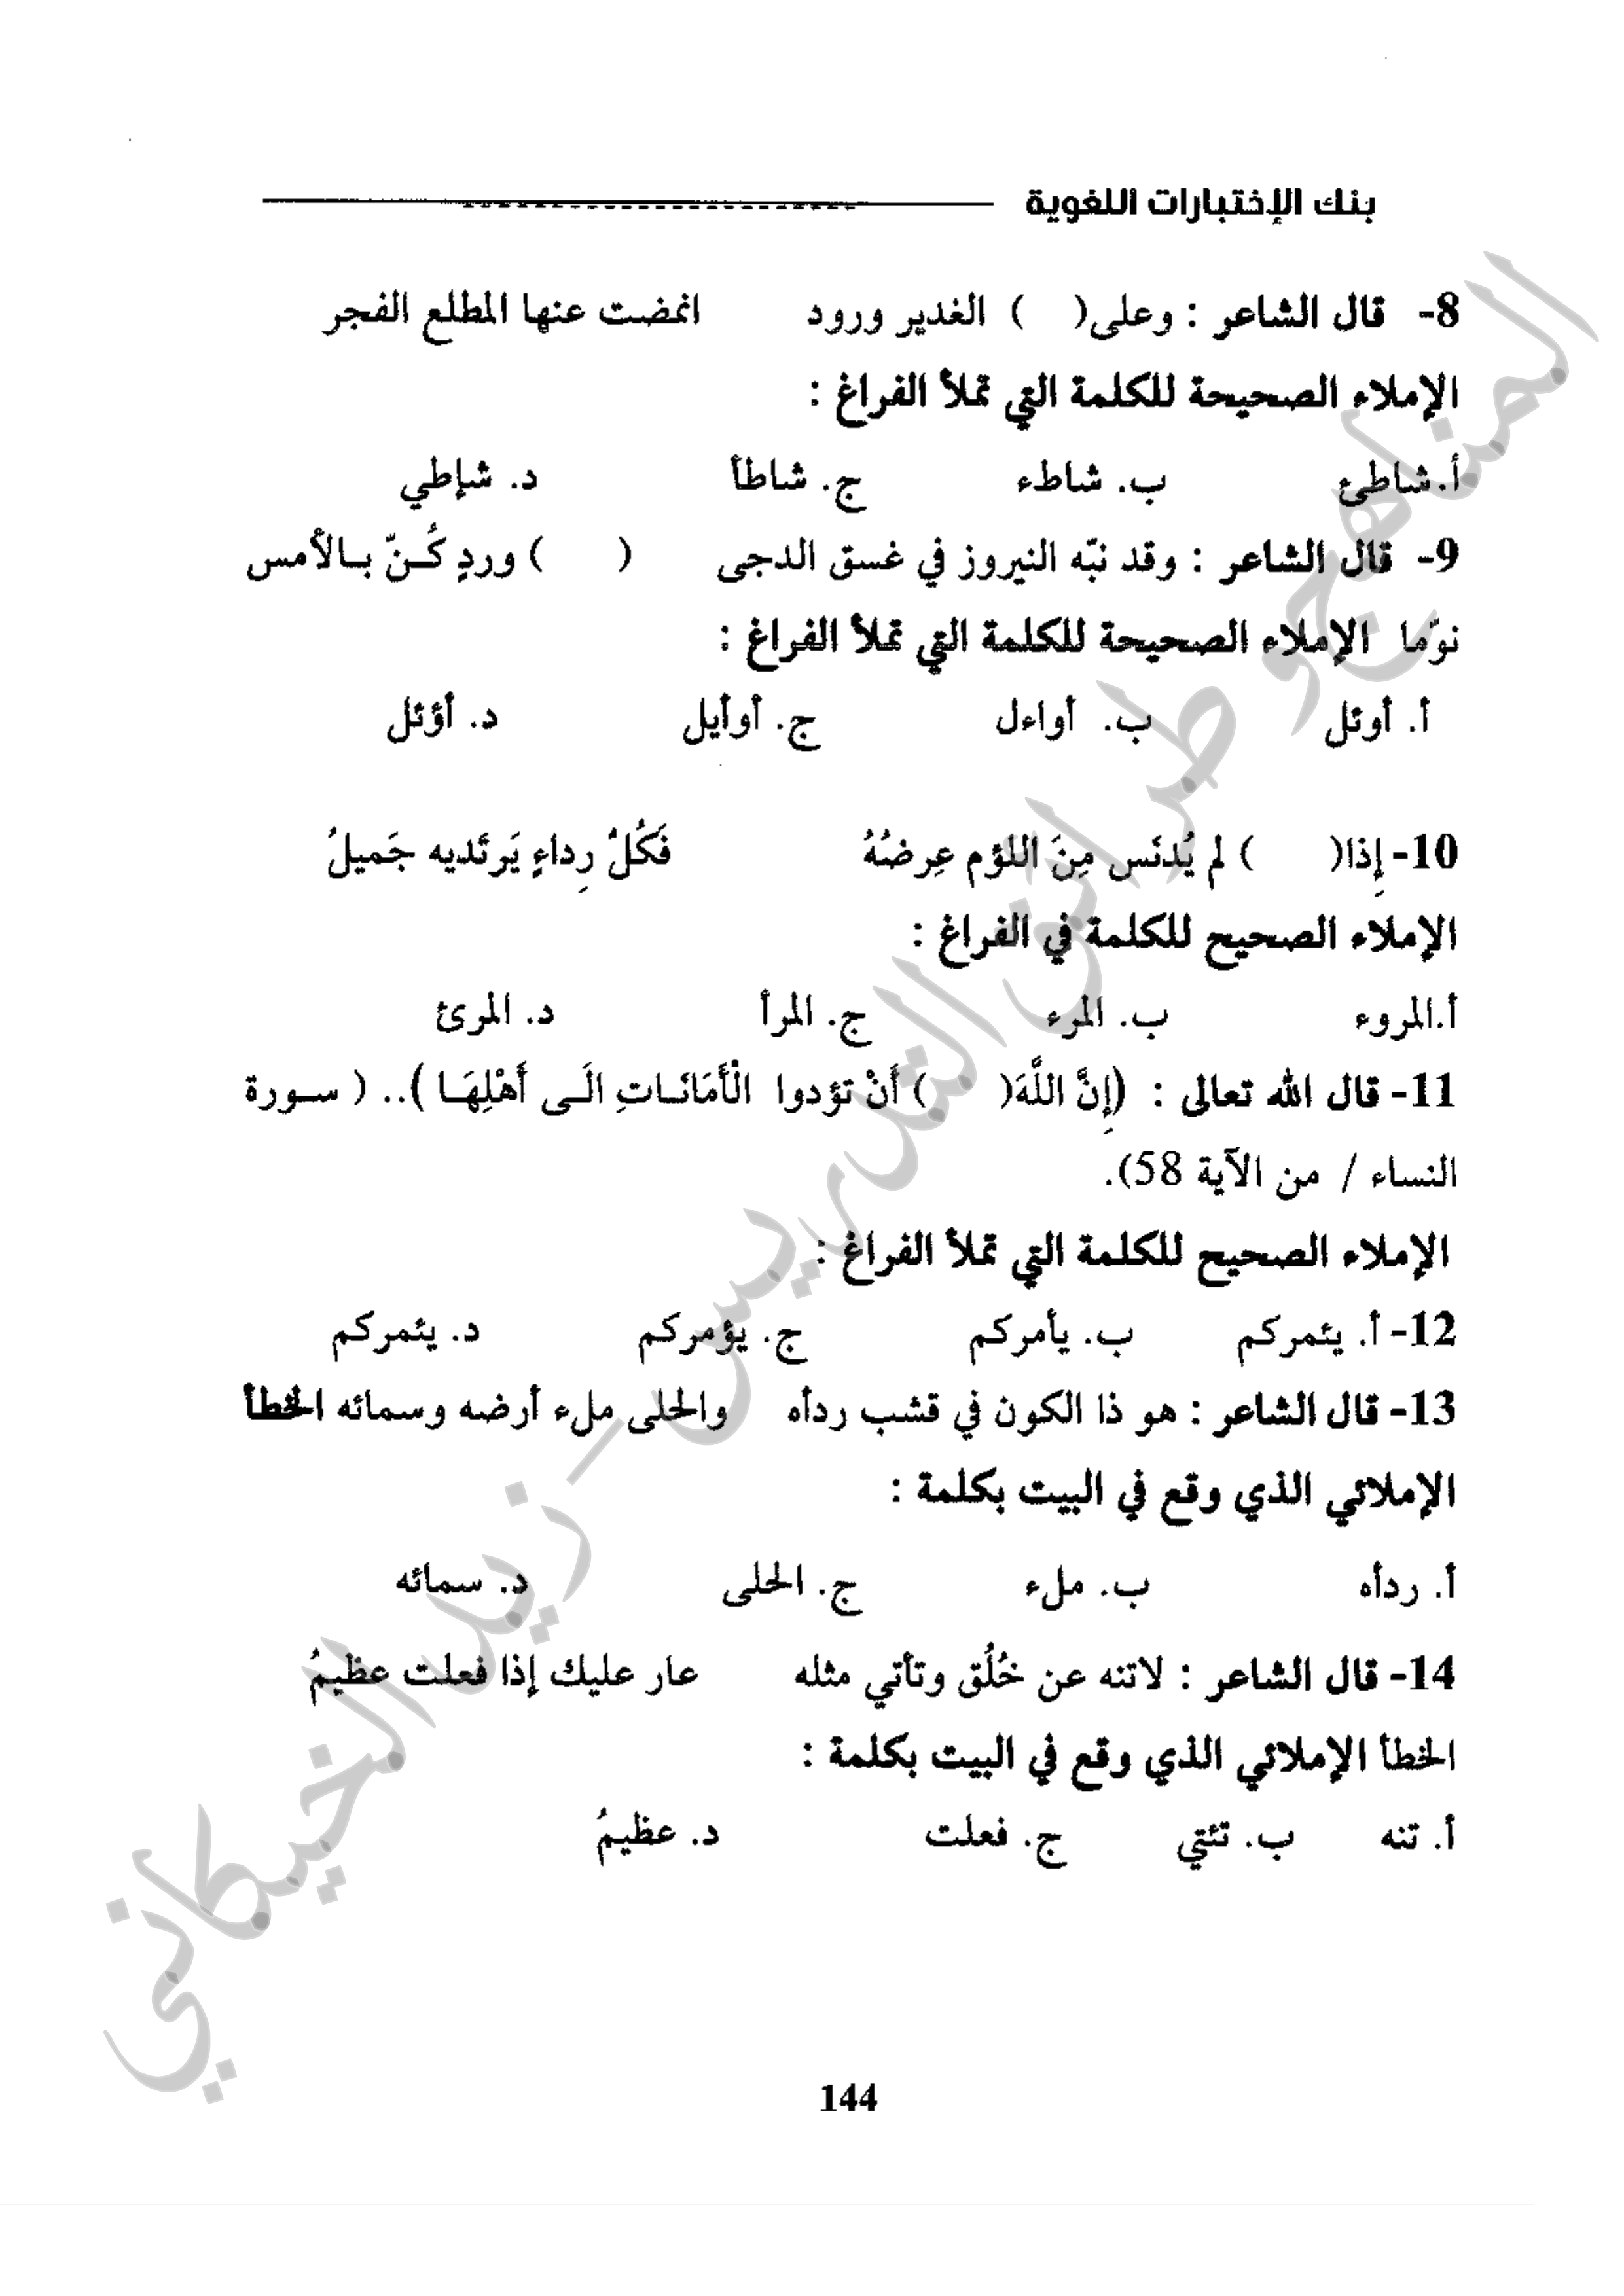 بنك الإختبارات اللغوية
8- قال الشاعر : وعلى( ) الغدير ورود انمضت عنها المطلع الفجر
الإملاء الصحيحة للكلمة التي تملأ الفراغ :
أ.شاطئ ب. شاطء ج. شاطأ د. شإطي
9- قال الشاعر : وقد نبّه النيروز في غسق الدجى ( ) وردٍ كُـنّ بـالأمس
نوّما الإملاء الصحيحة للكلمة التي تملأ الفراغ :
أ. أوئل ب. أواءل ج. أوأيل د. أؤئل
10- إِذا( ) لم يُدنَس مِنَ اللؤم عِرضُهُ فَكُلُّ رِداءٍ يَرتَديه جَميلُ
الإملاء الصحيح للكلمة في الفراغ :
أ.المروء ب. المرء ج. المرأ د. المرئ
11- قال الله تعالى : (إِنَّ اللَّهَ( ) أَنْ تؤدوا الْأَمَانَـاتِ الَـى أَهْلِهَـا ).. ( سـورة
النساء / من الآية 58).
الإملاء الصحيح للكلمة التي تملأ الفراغ :
12- أ. يئمركم ب. يأمركم ج. يؤمركم د. يئمركم
13- قال الشاعر : هو ذا الكون في قشب ردأه والحلى ملء أرضه وسمائه الخطأ
الإملائي الذي وقع في البيت بكلمة :
أ. ردأه ب. ملء ج. الحلى د. سمائه
14- قال الشاعر : لاتنه عن خُلُق وتأتي مثله عار عليك إذا فعلت عظيمُ
الخطأ الإملائي الذي وقع في البيت بكلمة :
أ. تنه ب. تئتي ج. فعلت د. عظيمُ
144
المناهج و طرائق التدريس – زيد الخيكاني